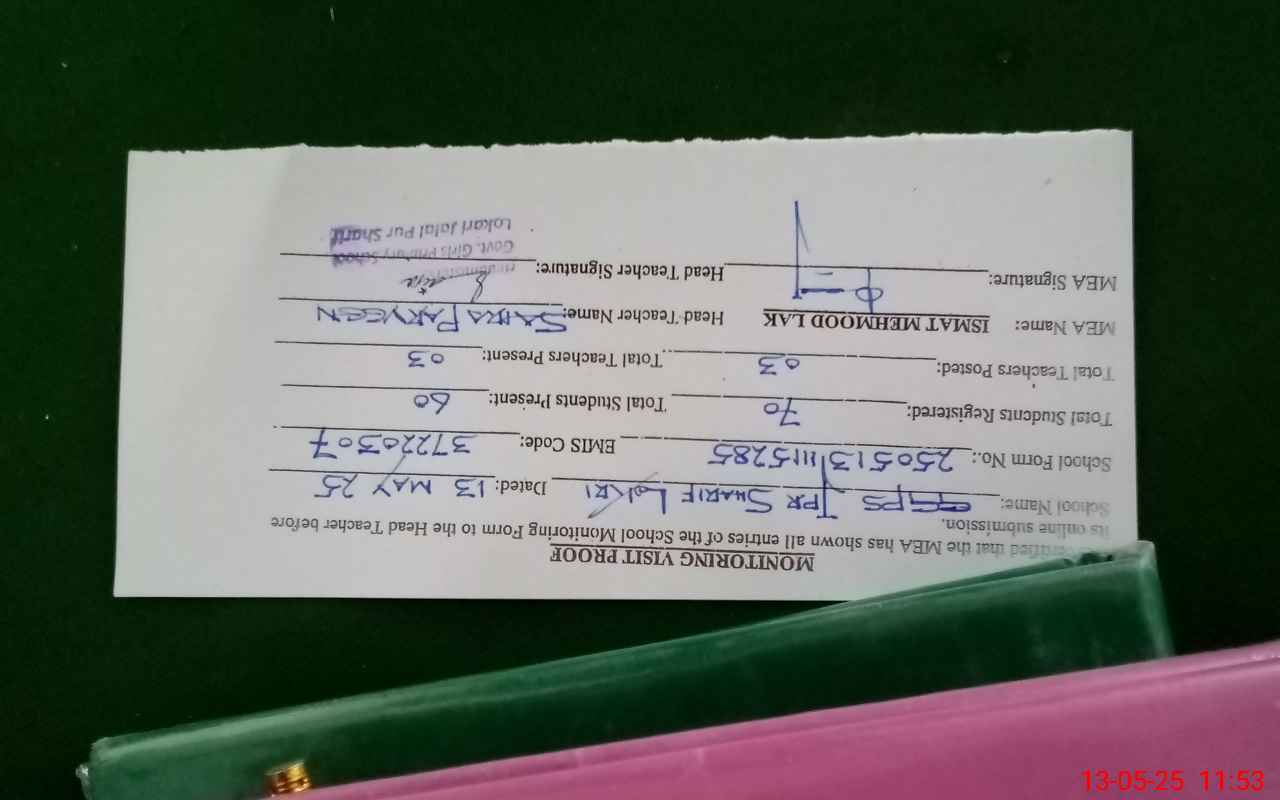 MONITORING VISIT PROOF
certified that the MEA has shown all entries of the School Monitoring Form to the Head Teacher before
its online submission.
School Name: GGPS JPR SHARIF LOKRI Dated: 13 MAY 25
School Form No.: 2505131115285 EMIS Code: 37220307
Total Students Registered: 70 Total Students Present: 60
Total Teachers Posted: 03 Total Teachers Present: 03
MEA Name: ISMAT MEHMOOD LAK Head Teacher Name: SAIRA PARVEEN
MEA Signature: Head Teacher Signature:
Govt. Girls Primary School
Lokari Jalal Pur Sharif
13-05-25 11:53